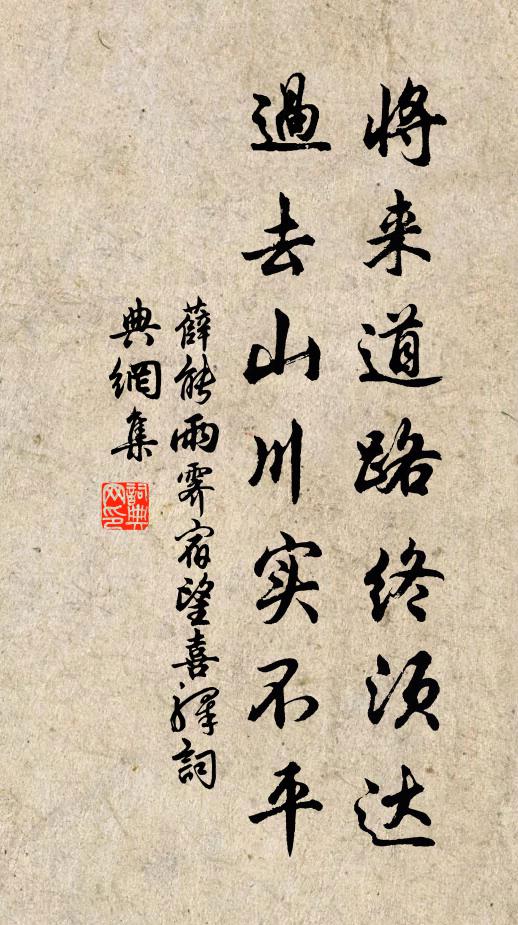 将来道路终须达
過去山川实不平
薛能雨霁宿望喜驛詞
典網集
詞典
网印